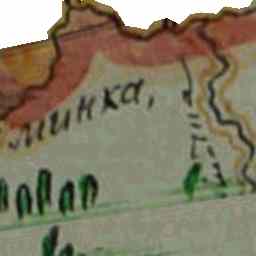 минка,